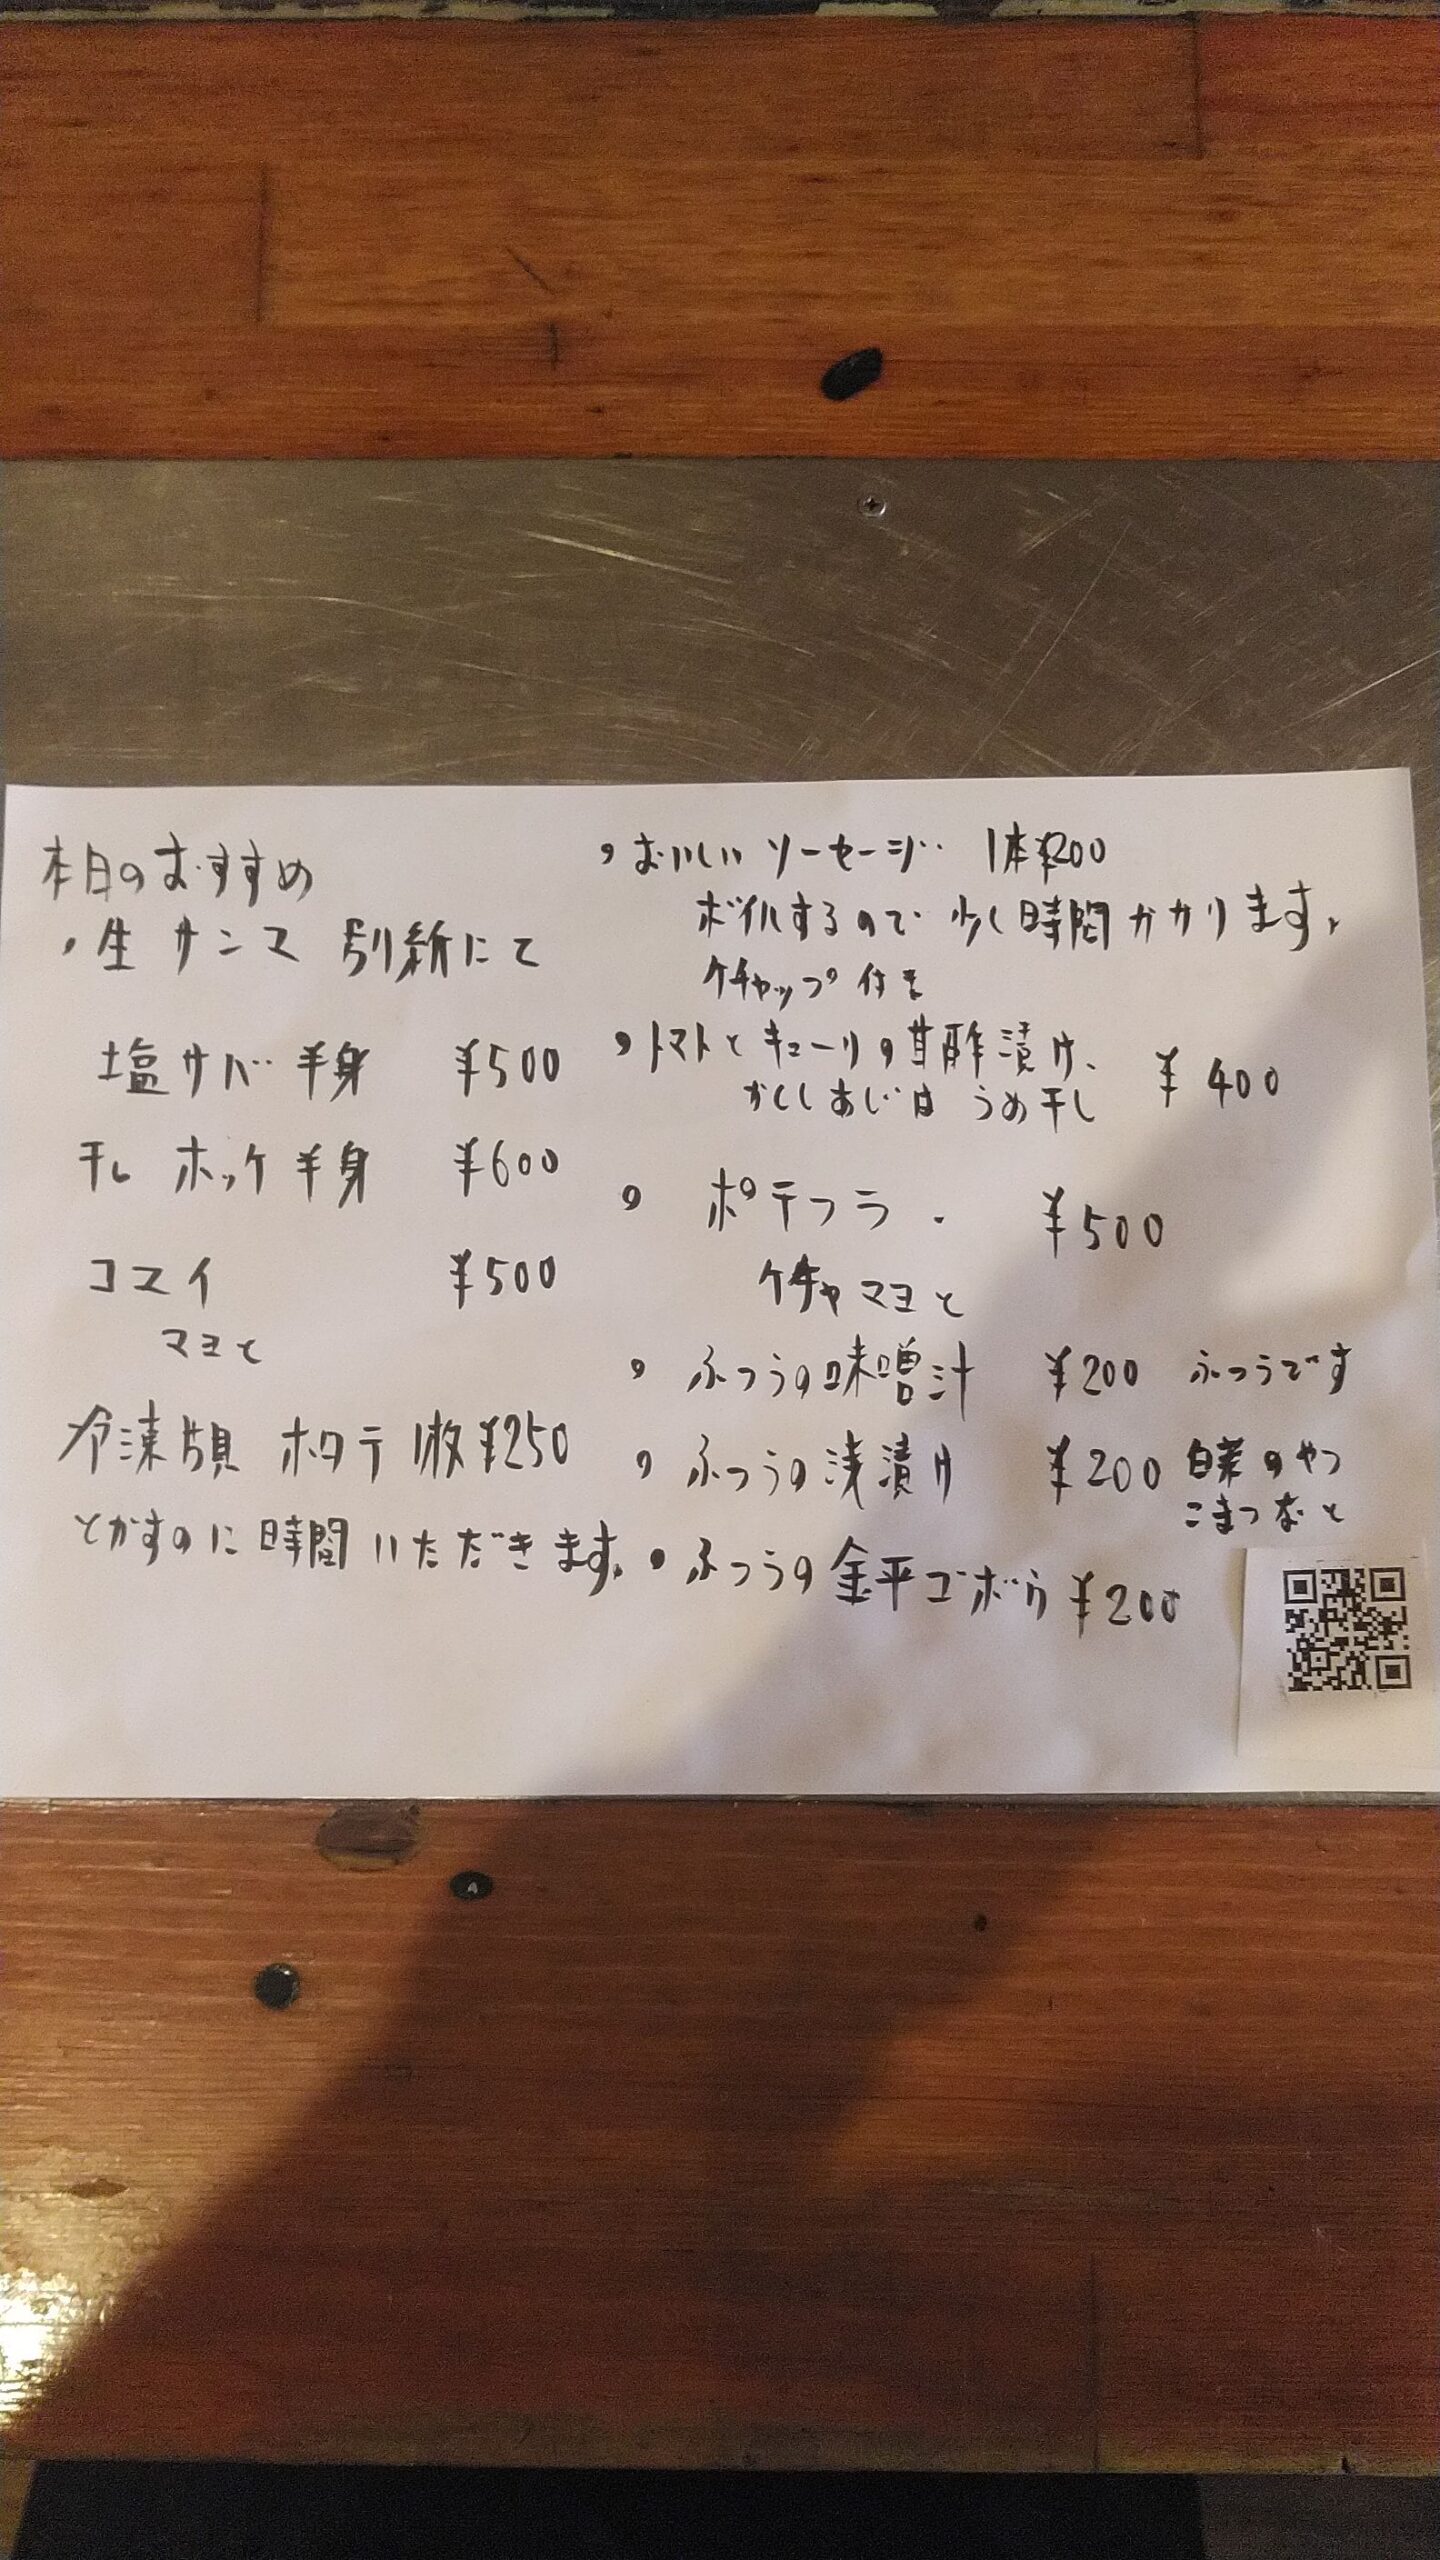 本日のおすすめ
・生サンマ 別紙にて
塩サバ半身 ¥500
干しホッケ半身 ¥600
コマイ ¥500
マヨと
冷凍 ホタテ 1枚¥250
とかすのに時間いただきます。
・おいしいソーセージ 1本¥200
ボイルするので少し時間かかります。
ケチャップ付き
・トマトとキューリの甘酢漬け、 ¥400
かくしあじは うめ干し
・ポテフラ. ¥500
ケチャマヨと
・ふつうの味噌汁 ¥200 ふつうです
・ふつうの浅漬け ¥200 白菜のやつ
こまつなと
・ふつうの金平ゴボウ ¥200